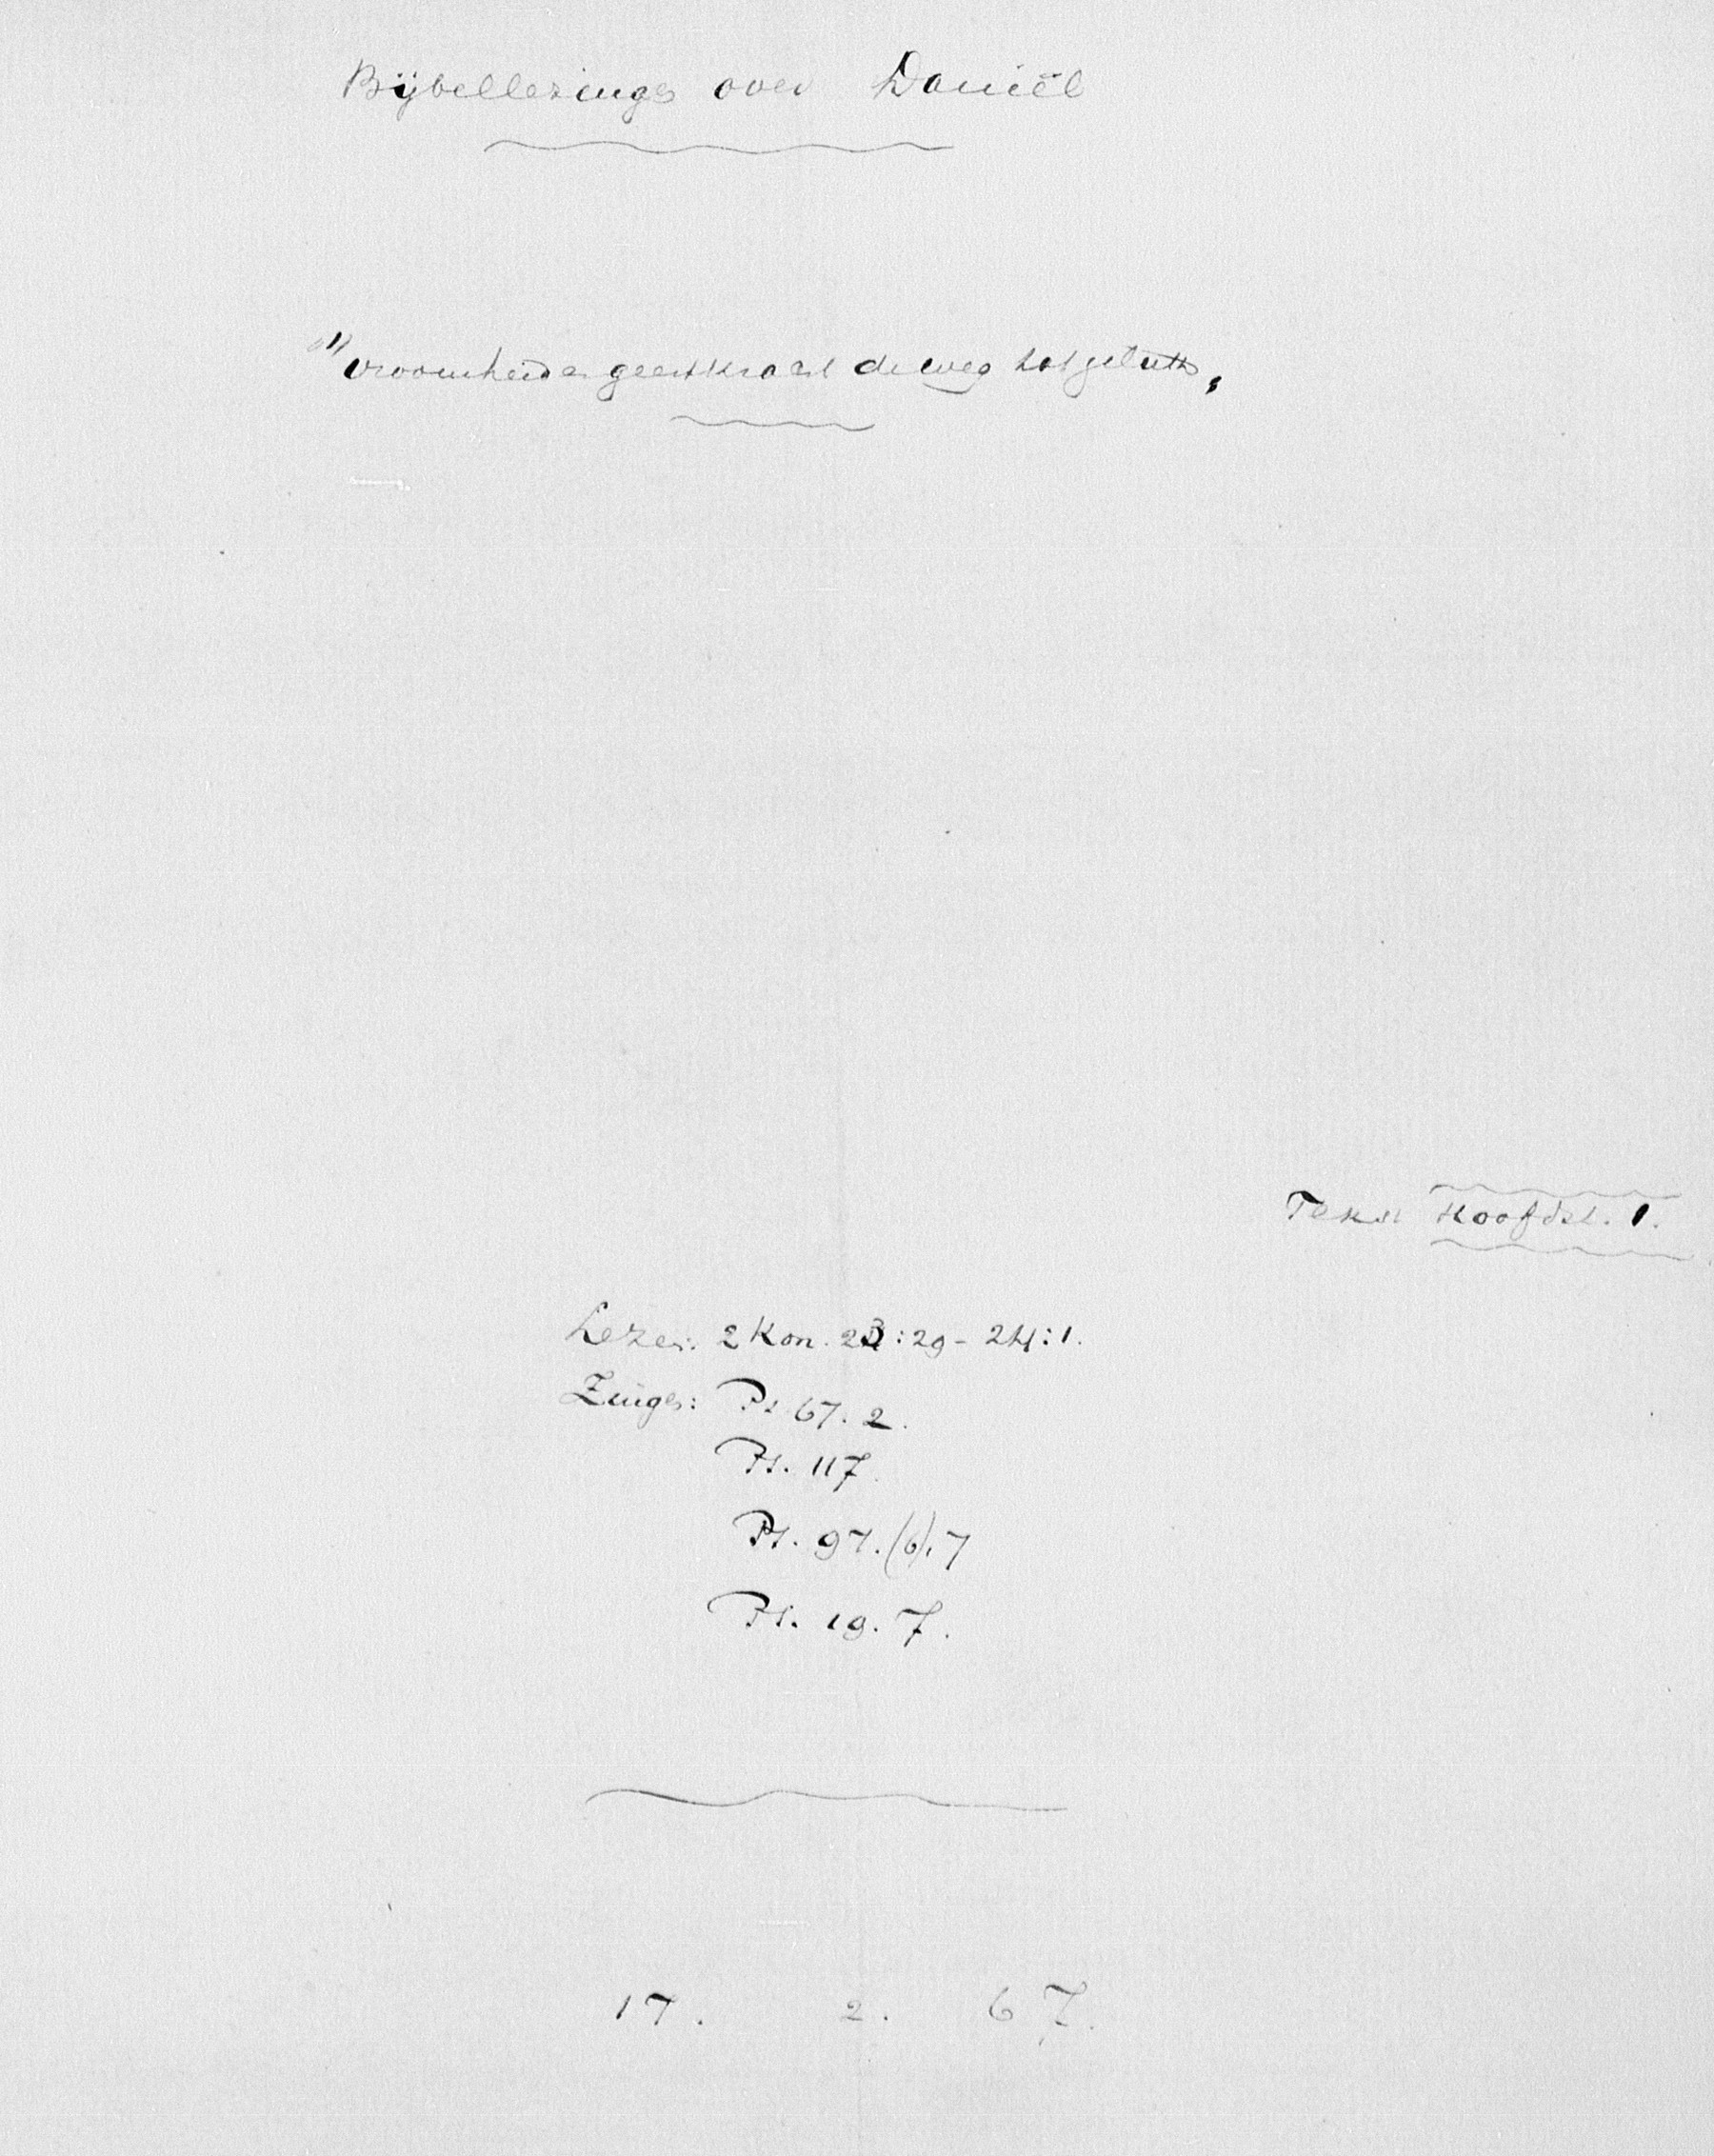 Bijbellezingen over Daniël
"Vroomheid en geestkracht de weg tot geluk"
Tekst Hoofdst. 1.
Lezen: 2 Kon. 23:29 - 24:1.
Zingen: Ps 67. 2.
Ps. 117.
Ps. 97. (6). 7
Ps. 19. 7.
17. 2. 67.